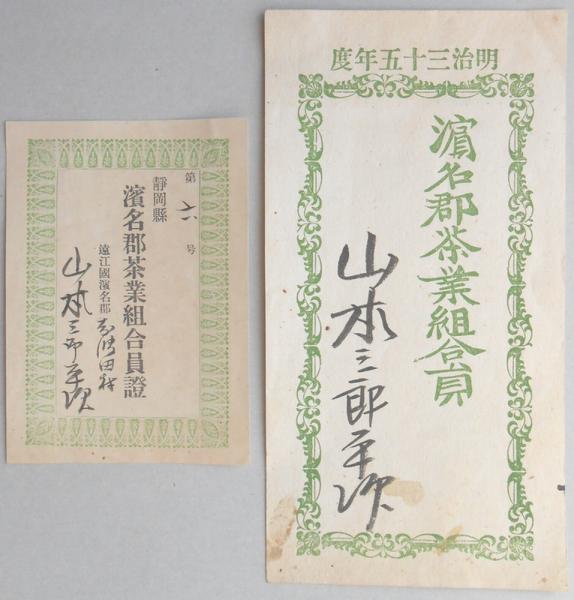 明治三十五年度
濱名郡茶業組合員
山本三郎平次
第六号
静岡縣
濱名郡茶業組合員證
遠江國濱名郡
山本三郎平次